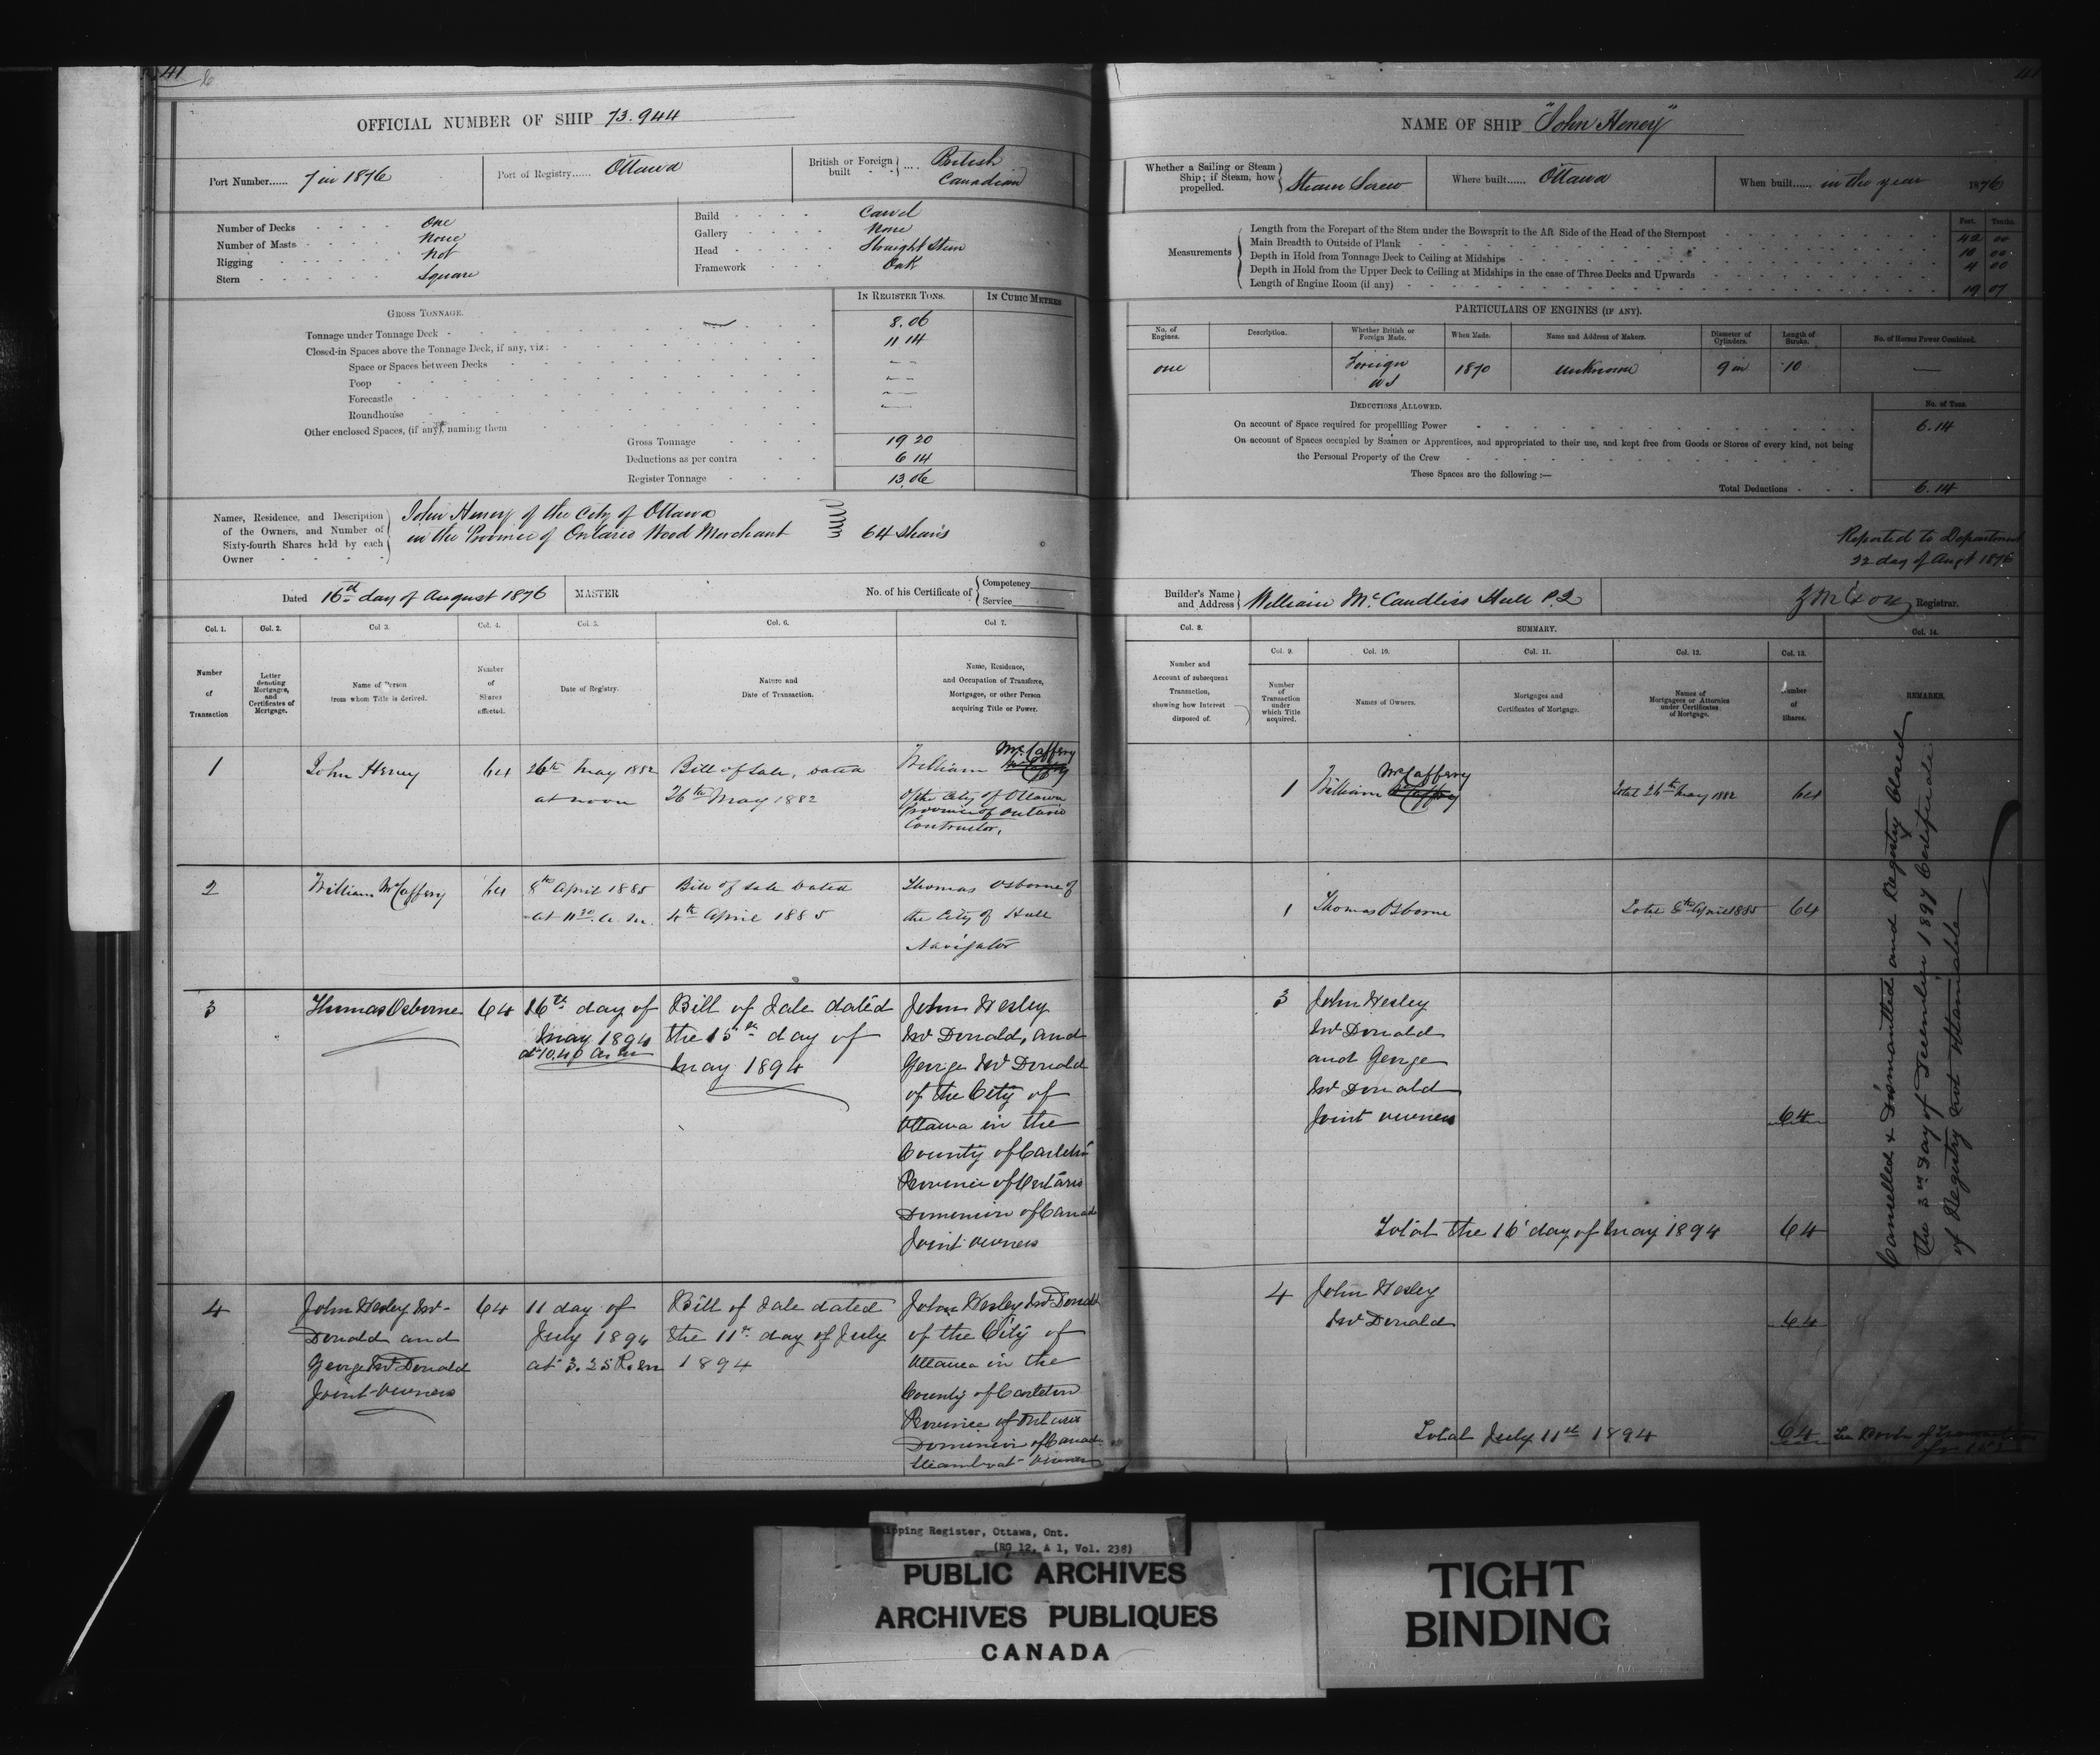 41
OFFICIAL NUMBER OF SHIP 73.944
Port Number...... 7 in 1876
Port of Registry...... Ottawa
British or Foreign built .... British Canadian
Number of Decks One
Number of Masts None
Rigging Not
Stern Square
Build Carvel
Gallery None
Head Straight Stem
Framework Oak
IN REGISTER TONS.
IN CUBIC METRES
GROSS TONNAGE.
Tonnage under Tonnage Deck 8.06
Closed-in Spaces above the Tonnage Deck, if any, viz: 11 14
Space or Spaces between Decks
Poop
Forecastle
Roundhouse
Other enclosed Spaces, (if any), naming them
Gross Tonnage 19 20
Deductions as per contra 6 14
Register Tonnage 13.06
Names, Residence, and Description
of the Owners, and Number of
Sixty-fourth Shares held by each
Owner
John Heney of the City of Ottawa
in the Province of Ontario Wood Merchant
64 Shares
Dated 16th day of August 1876
MASTER
No. of his Certificate of
Competency
Service
Col. 1.
Col. 2.
Col 3.
Col. 4.
Col. 5.
Col. 6.
Col 7.
Number
of
Transaction
Letter
denoting
Mortgages,
and
Certificates of
Mortgage.
Name of Person
from whom Title is derived.
Number
of
Shares
affected.
Date of Registry.
Nature and
Date of Transaction.
Name, Residence,
and Occupation of Transferee,
Mortgagee, or other Person
acquiring Title or Power.
1
John Heney
64
26th May 1882
at noon
Bill of Sale, dated
26th May 1882
William McCaffery
of the City of Ottawa
Province of Ontario
Contractor,
2
William McCaffery
64
8th April 1885
at 11 30 a.m.
Bill of Sale dated
4th April 1885
Thomas Osborne of
the City of Hull
Navigator
3
Thomas Osborne
64
16th day of
May 1894
at 10.40 am
Bill of Sale dated
the 15th day of
May 1894
John Wesley
McDonald, and
George McDonald
of the City of
Ottawa in the
County of Carleton
Province of Ontario
Dominion of Canada
Joint Owners
4
John Wesley Mc-
Donald and
George McDonald
Joint Owners
64
11 day of
July 1894
at 3.25 P.m
Bill of Sale dated
the 11th day of July
1894
John Wesley McDonald
of the City of
Ottawa in the
County of Carleton
Province of Ontario
Dominion of Canada
Steamboat Owner
NAME OF SHIP "John Heney"
Whether a Sailing or Steam
Ship; if Steam, how
propelled.
Steam Screw
Where built...... Ottawa
When built...... in the year 1876
Measurements
Feet. Tenths.
Length from the Forepart of the Stem under the Bowsprit to the Aft Side of the Head of the Sternpost 42 00
Main Breadth to Outside of Plank 10 00
Depth in Hold from Tonnage Deck to Ceiling at Midships 4 00
Depth in Hold from the Upper Deck to Ceiling at Midships in the case of Three Decks and Upwards
Length of Engine Room (if any) 19 07
PARTICULARS OF ENGINES (IF ANY).
No. of
Engines.
Description.
Whether British or
Foreign Made.
When Made.
Name and Address of Makers.
Diameter of
Cylinders.
Length of
Stroke.
No. of Horses Power Combined.
one
Foreign
US
1870
unknown
9 in
10
DEDUCTIONS ALLOWED.
No. of Tons.
On account of Space required for propellling Power 6.14
On account of Spaces occupied by Seamen or Apprentices, and appropriated to their use, and kept free from Goods or Stores of every kind, not being
the Personal Property of the Crew
These Spaces are the following:—
Total Deductions 6.14
Reported to Department
22 day of Augt 1876
Builder's Name
and Address
William McCandliss Hull P.Q
Registrar.
Col. 8.
SUMMARY.
Col. 14.
Col. 9.
Col. 10.
Col. 11.
Col. 12.
Col. 13.
Number and
Account of subsequent
Transaction,
showing how Interest
disposed of.
Number
of
Transaction
under
which Title
acquired.
Names of Owners.
Mortgages and
Certificates of Mortgage.
Names of
Mortgagees or Attornies
under Certificates
of Mortgage.
Number
of
Shares.
REMARKS.
1
William McCaffery
Total 26th May 1882
64
1
Thomas Osborne
Total 8th April 1885
64
3
John Wesley
McDonald
and George
McDonald
Joint Owners
64
Total the 16 day of May 1894
64
4
John Wesley
McDonald
64
Total July 11th 1894
64
Cancelled & Dismantled and Registry Closed
the 3rd day of December 1897 Certificate
of Registry not Attainable
See Book of Transactions
Shipping Register, Ottawa, Ont.
(RG 12, A 1, Vol. 238)
PUBLIC ARCHIVES
ARCHIVES PUBLIQUES
CANADA
TIGHT
BINDING